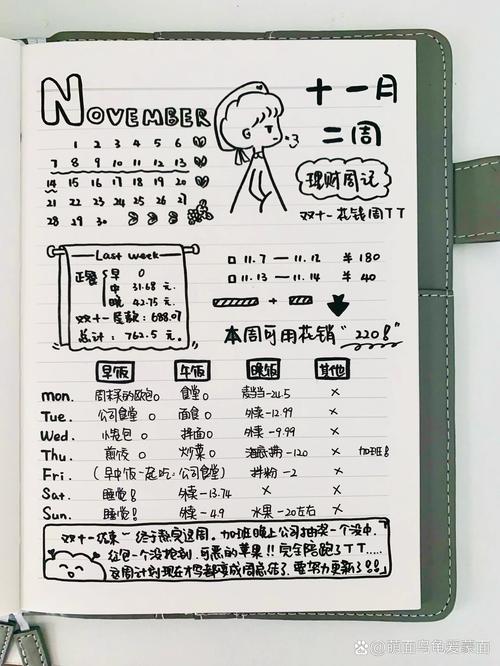 NOVEMBER
十一月
二周
理财周记
双十一花销周TT
1 2 3 4 5 6
7 8 9 10 11 12 13
14 15 16 17 18 19 20
21 22 23 24 25 26 27
28 29 30
Last week
正餐 早 0
中 31.68 元.
晚 42.75 元.
双十一尾款: 688.07
总计: 762.5 元.
11.7 — 11.12 ¥ 180
11.13 — 11.14 ¥ 40
+
本周可用花销"220!"
早饭 午饭 晚饭 其他
mon. 周末买的欧包 0 食堂 0 麦当-24.5 ×
Tue. 公司食堂 0 面食 0 外卖-12.99 ×
Wed. 小袋包 0 拌面 0 外卖-9.99 ×
Thu. 煎饺 0 炒菜 0 海底捞-120 × 加班!
Fri. (早中饭一起吃:公司食堂) 拌粉-2 ×
Sat. 睡觉! 外卖-13.74 × ×
Sun. 睡觉! 外卖-4.9 水果-20左右 ×
双十一结束~终于熬完这周. 加班晚上公司抽奖一个没中,
红包一个没抢到, 可恶的苹果!! 完全陪跑了TT.....
这周计划现在才写都变成周总结了. 要努力更新了!!
百家号/萌面乌龟爱蒙面